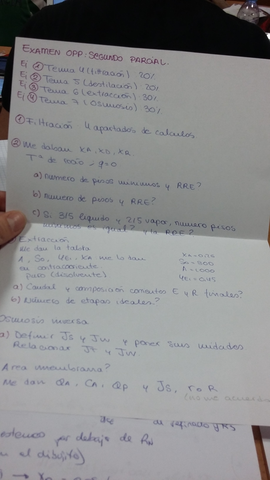 EXAMEN OPP: SEGUNDO PARCIAL.
Ej ① Tema 4 (filtración) 20%
Ej ② Tema 5 (destilación) 20%
Ej ③ Tema 6 (extracción) 30%
Ej ④ Tema 7 (Osmosis) 30%
① Filtración 4 apartados de calculos
② Me daban XF, XD, XR
Tª de bulbo, q=0
a) Número de pisos mínimos y RRE?
b) Número de pisos y RRE?
c) Si 3/5 líquido y 2/5 vapor, número pisos
Extracción.
me dan la tabla
en contracorriente
puros (disolvente)
a) Caudal y composición corrientes E y R finales?
b) Número de etapas ideales?
Osmosis inversa
a) Definir Js y Jw y poner sus unidades
Relacionar JF y Jw
Área membrana?
Me dan QA, CA, QP y JS, r o R
de refinado y
por debajo de
el depósito)